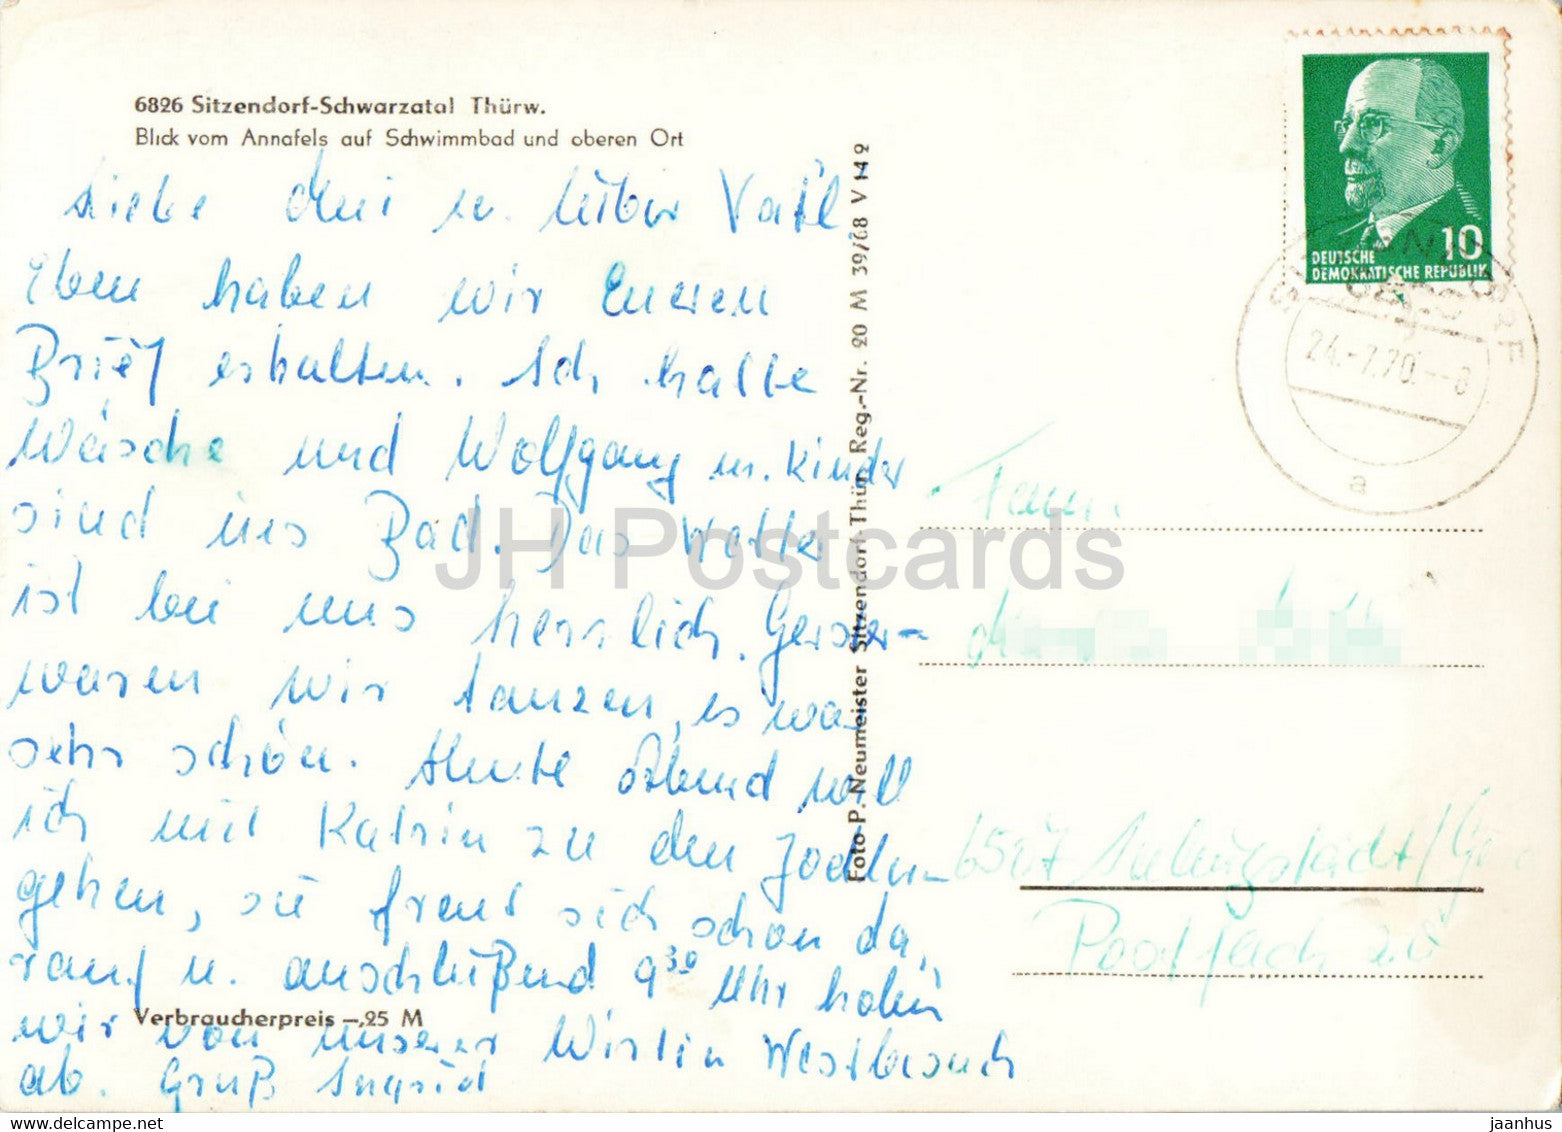 6826 Sitzendorf-Schwarzatal Thürw.
Blick vom Annafels auf Schwimmbad und oberen Ort
Liebe u. lieber Vati!
Eben haben wir Eueren
Brief erhalten. Ich hatte
Wäsche und Wolfgang u. Kinder
sind ins Bad. Das Wetter
ist bei uns herrlich. Gestern
waren wir tanzen, es war
sehr schön. Heute Abend will
ich mit Katrin zu den Jodlern
gehen, sie freut sich schon da,
rauf u. anschließend 9³⁰ Uhr holen
wir von unserer Wirtin Westbesuch
ab. Gruß Ingrid
Verbraucherpreis –,25 M
Foto P. Neumeister Sitzendorf Thür Reg.-Nr. 20 M 39/68 V 149
10
DEUTSCHE
DEMOKRATISCHE REPUBLIK
SITZENDORF
24.-7.70.--8
a
Fam.
6507
Postfach
JH Postcards
jaanhus